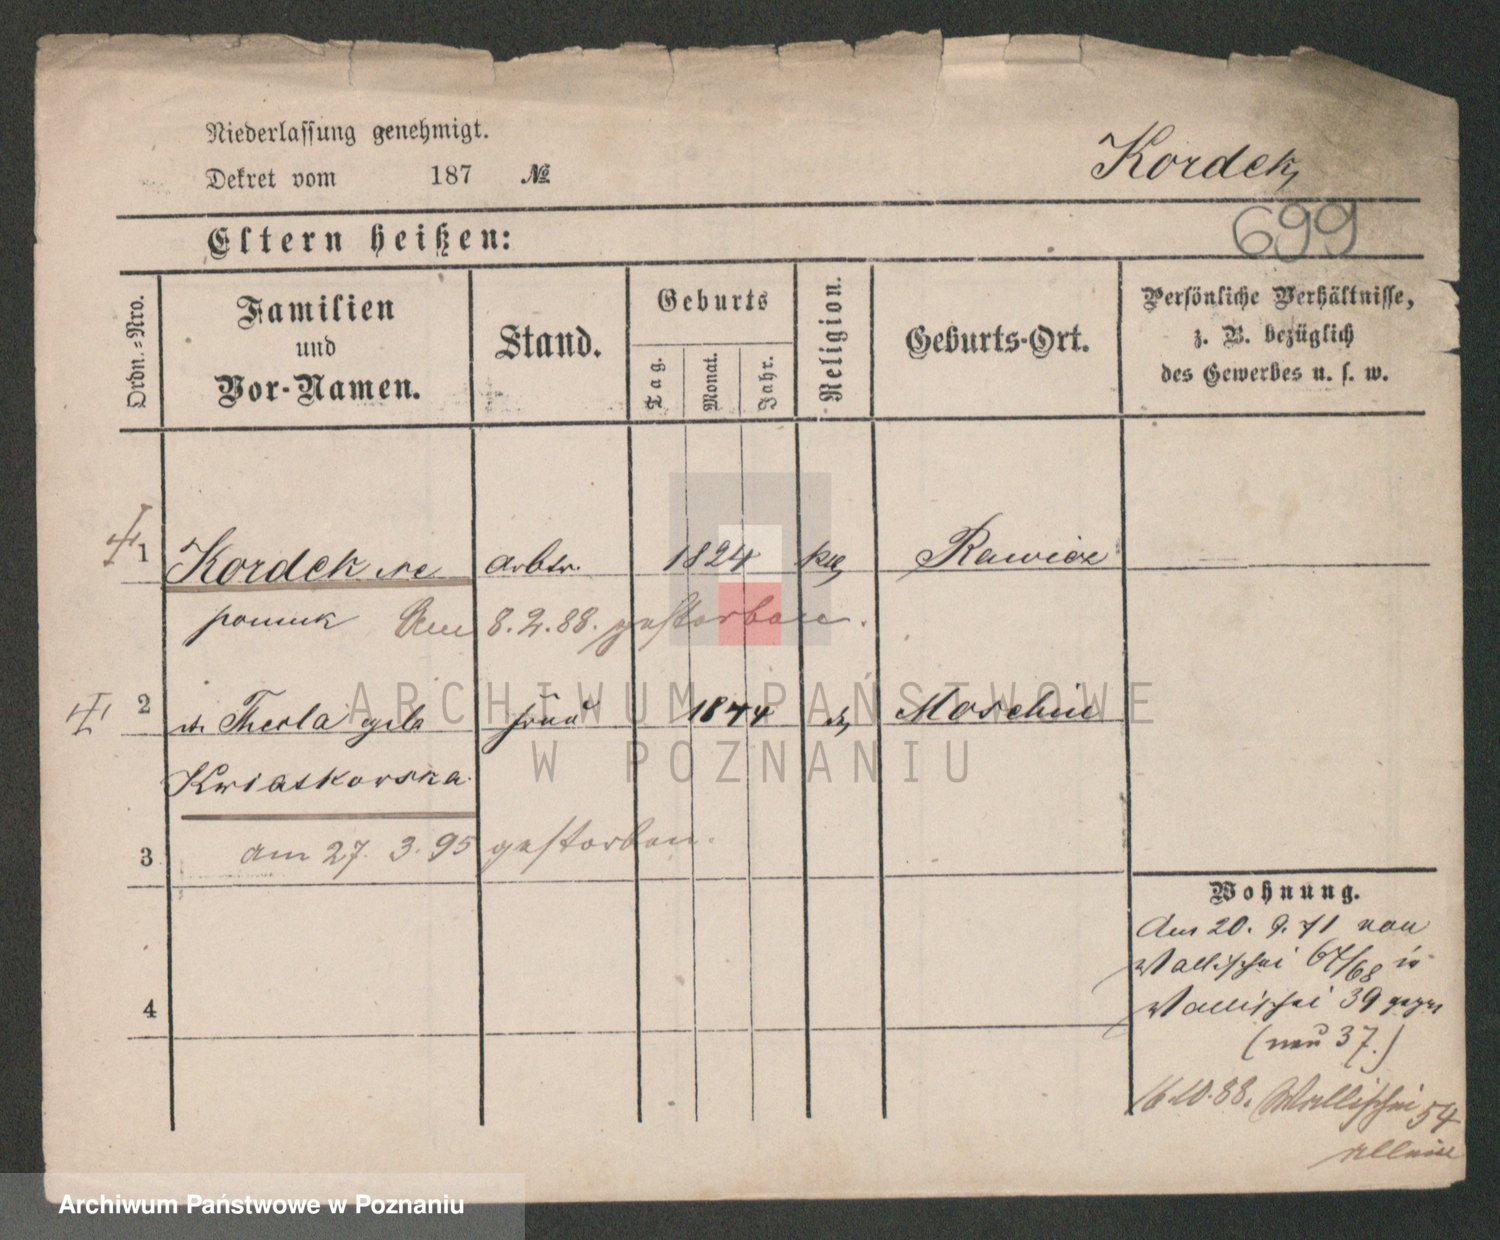 Niederlassung genehmigt.
Dekret vom 187 №
Kordek,
699
Eltern heißen:
Ordn.-Nro.
Familien
und
Vor-Namen.
Stand.
Geburts
Tag.
Monat.
Jahr.
Religion.
Geburts-Ort.
Persönliche Verhältnisse,
z. B. bezüglich
des Gewerbes u. s. w.
1 Kordek Ne arbtr. 1824 kth Rawicz
pomuk Am 8.2.88. gestorben.
2 Thecla geb Frau Moschin
Kwiatkowska.
3 am 27. 3. 95 gestorben.
4
Wohnung.
Am 20. 9. 71 von
Wallischei 67/68 in
Wallischei 39 gezogen
(neu 37.)
16.10.88. Wallischei 54
ARCHIWUM PAŃSTWOWE
W POZNANIU
Archiwum Państwowe w Poznaniu